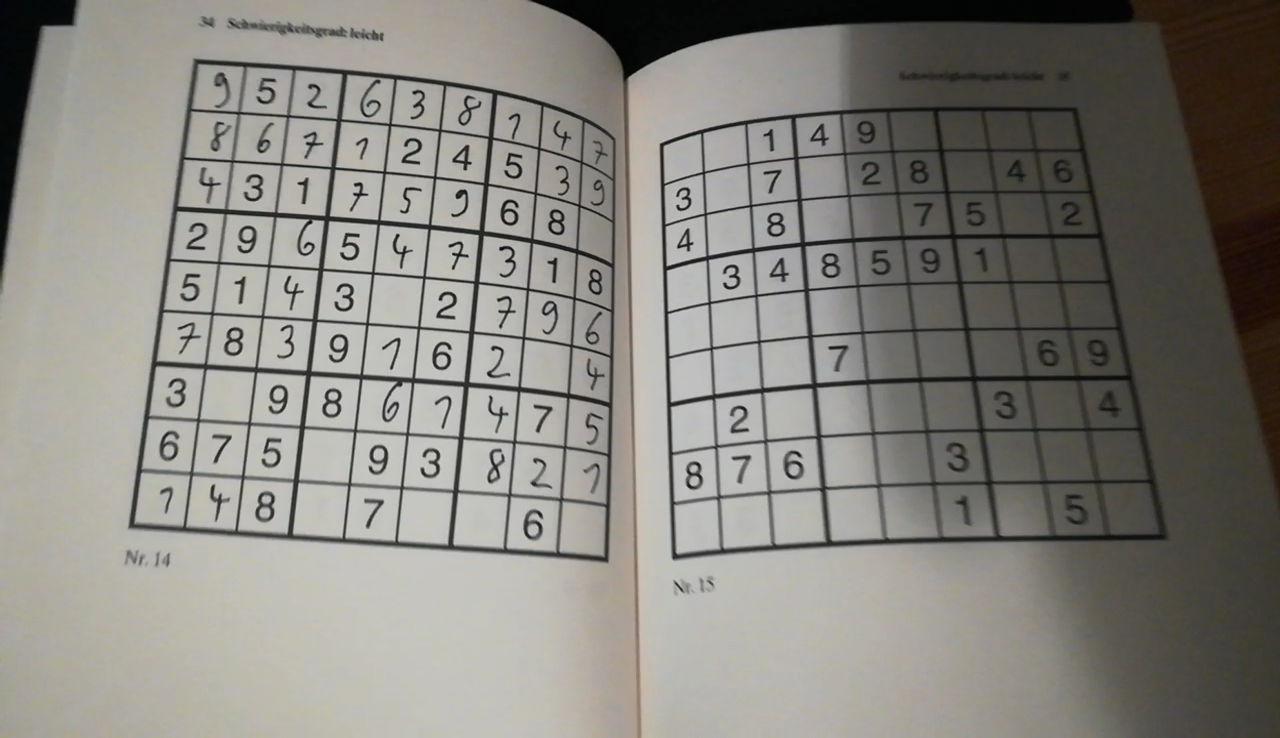 34 Schwierigkeitsgrad: leicht
9 5 2 6 3 8 1 4 7
8 6 7 1 2 4 5 3 9
4 3 1 7 5 9 6 8
2 9 6 5 4 7 3 1 8
5 1 4 3 2 7 9 6
7 8 3 9 1 6 2 4
3 9 8 6 1 4 7 5
6 7 5 9 3 8 2 1
1 4 8 7 6
Nr. 14
Schwierigkeitsgrad: leicht
1 4 9
3 7 2 8 4 6
4 8 7 5 2
3 4 8 5 9 1
7 6 9
2 3 4
8 7 6 3
1 5
Nr. 15